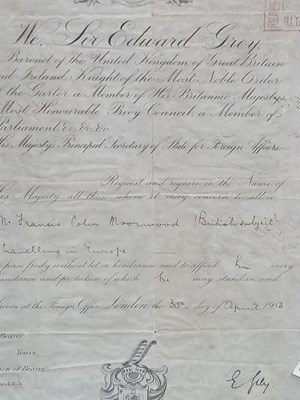 We, Sir Edward Grey,
Baronet of the United Kingdom of Great Britain
and Ireland, Knight of the Most Noble Order
of the Garter, a Member of His Britannic Majesty's
Most Honourable Privy Council, a Member of
Parliament &c. &c. &c.
His Majesty's Principal Secretary of State for Foreign Affairs
Request and require in the Name of
His Majesty, all those whom it may concern to allow
Mr. Francis Colin Moorwood (British subject)
travelling in Europe
to pass freely without let or hindrance and to afford him every
assistance and protection of which he may stand in need.
Given at the Foreign Office, London the day of April 1913
of Bearer
E Grey